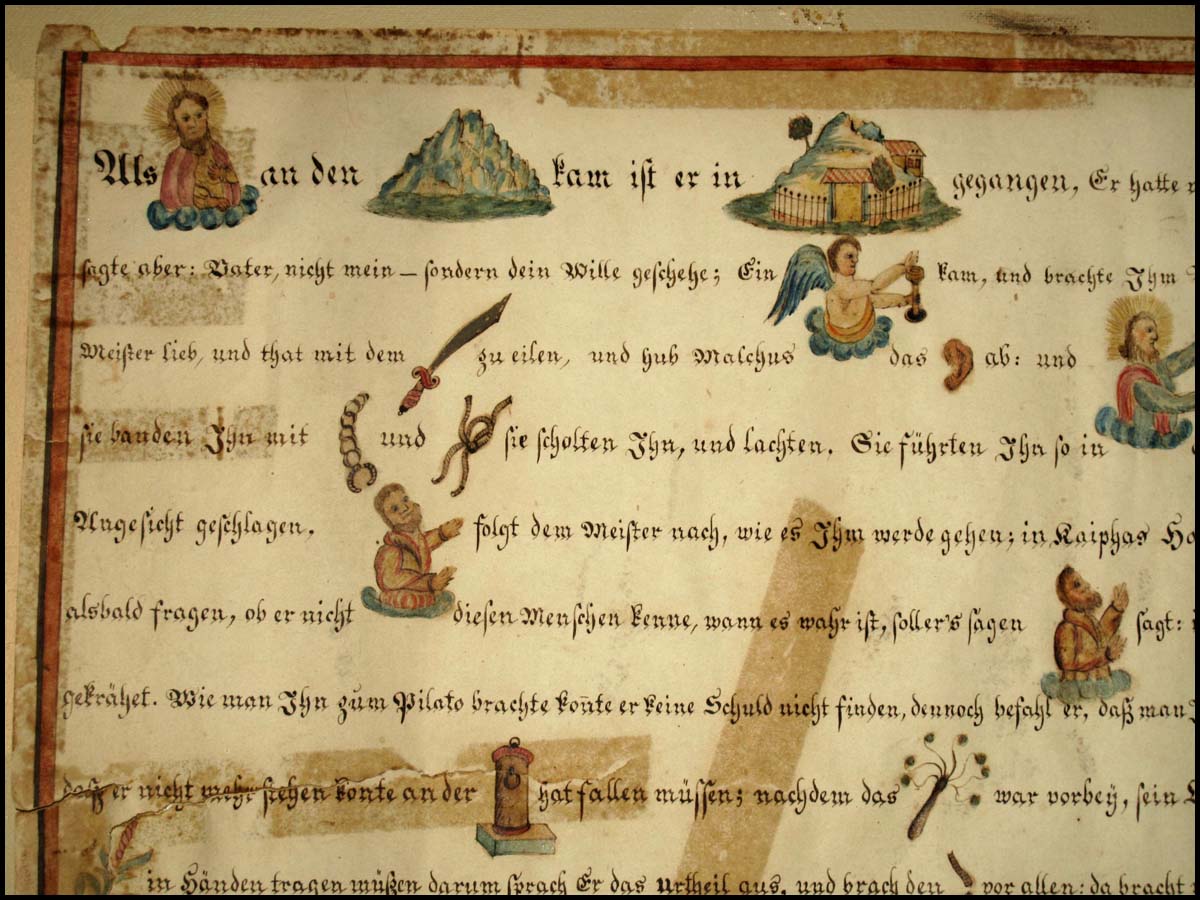 Als an den kam ist er in gegangen, Er hatte
sagte aber: Vater, nicht mein – sondern dein Wille geschehe; Ein kam, und brachte Ihm
Meister lieb, und that mit dem zu eilen, und hub Malchus das ab: und
sie banden Ihn mit und sie scholten Ihn, und lachten. Sie führten Ihn so in
Angesicht geschlagen. folgt dem Meister nach, wie es Ihm werde gehen; in Kaiphas
alsbald fragen, ob er nicht diesen Menschen kenne, wann es wahr ist, soller's sagen sagt:
gekrähet. Wie man Ihn zum Pilato brachte kon̄te er keine Schuld nicht finden, dennoch befahl er, daß man
daß er nicht mehr stehen konte an der hat fallen müssen; nachdem das war vorbey, sein
in Händen tragen müßen darum sprach Er das urtheil aus, und brach den vor allen: da bracht